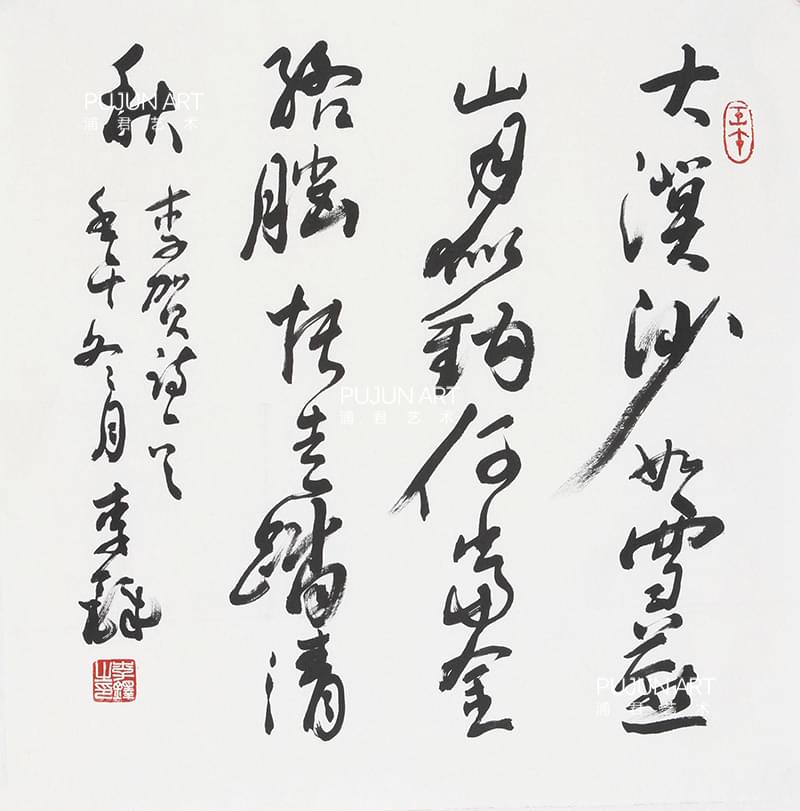 大漠沙如雪燕
山月似鈎何当金
絡腦快走踏清
秋
李贺诗一首
壬午冬月 李鐸
李鐸之印
PUJUN ART
浦君艺术
PUJUN ART
浦君艺术
PUJUN ART
浦君艺术